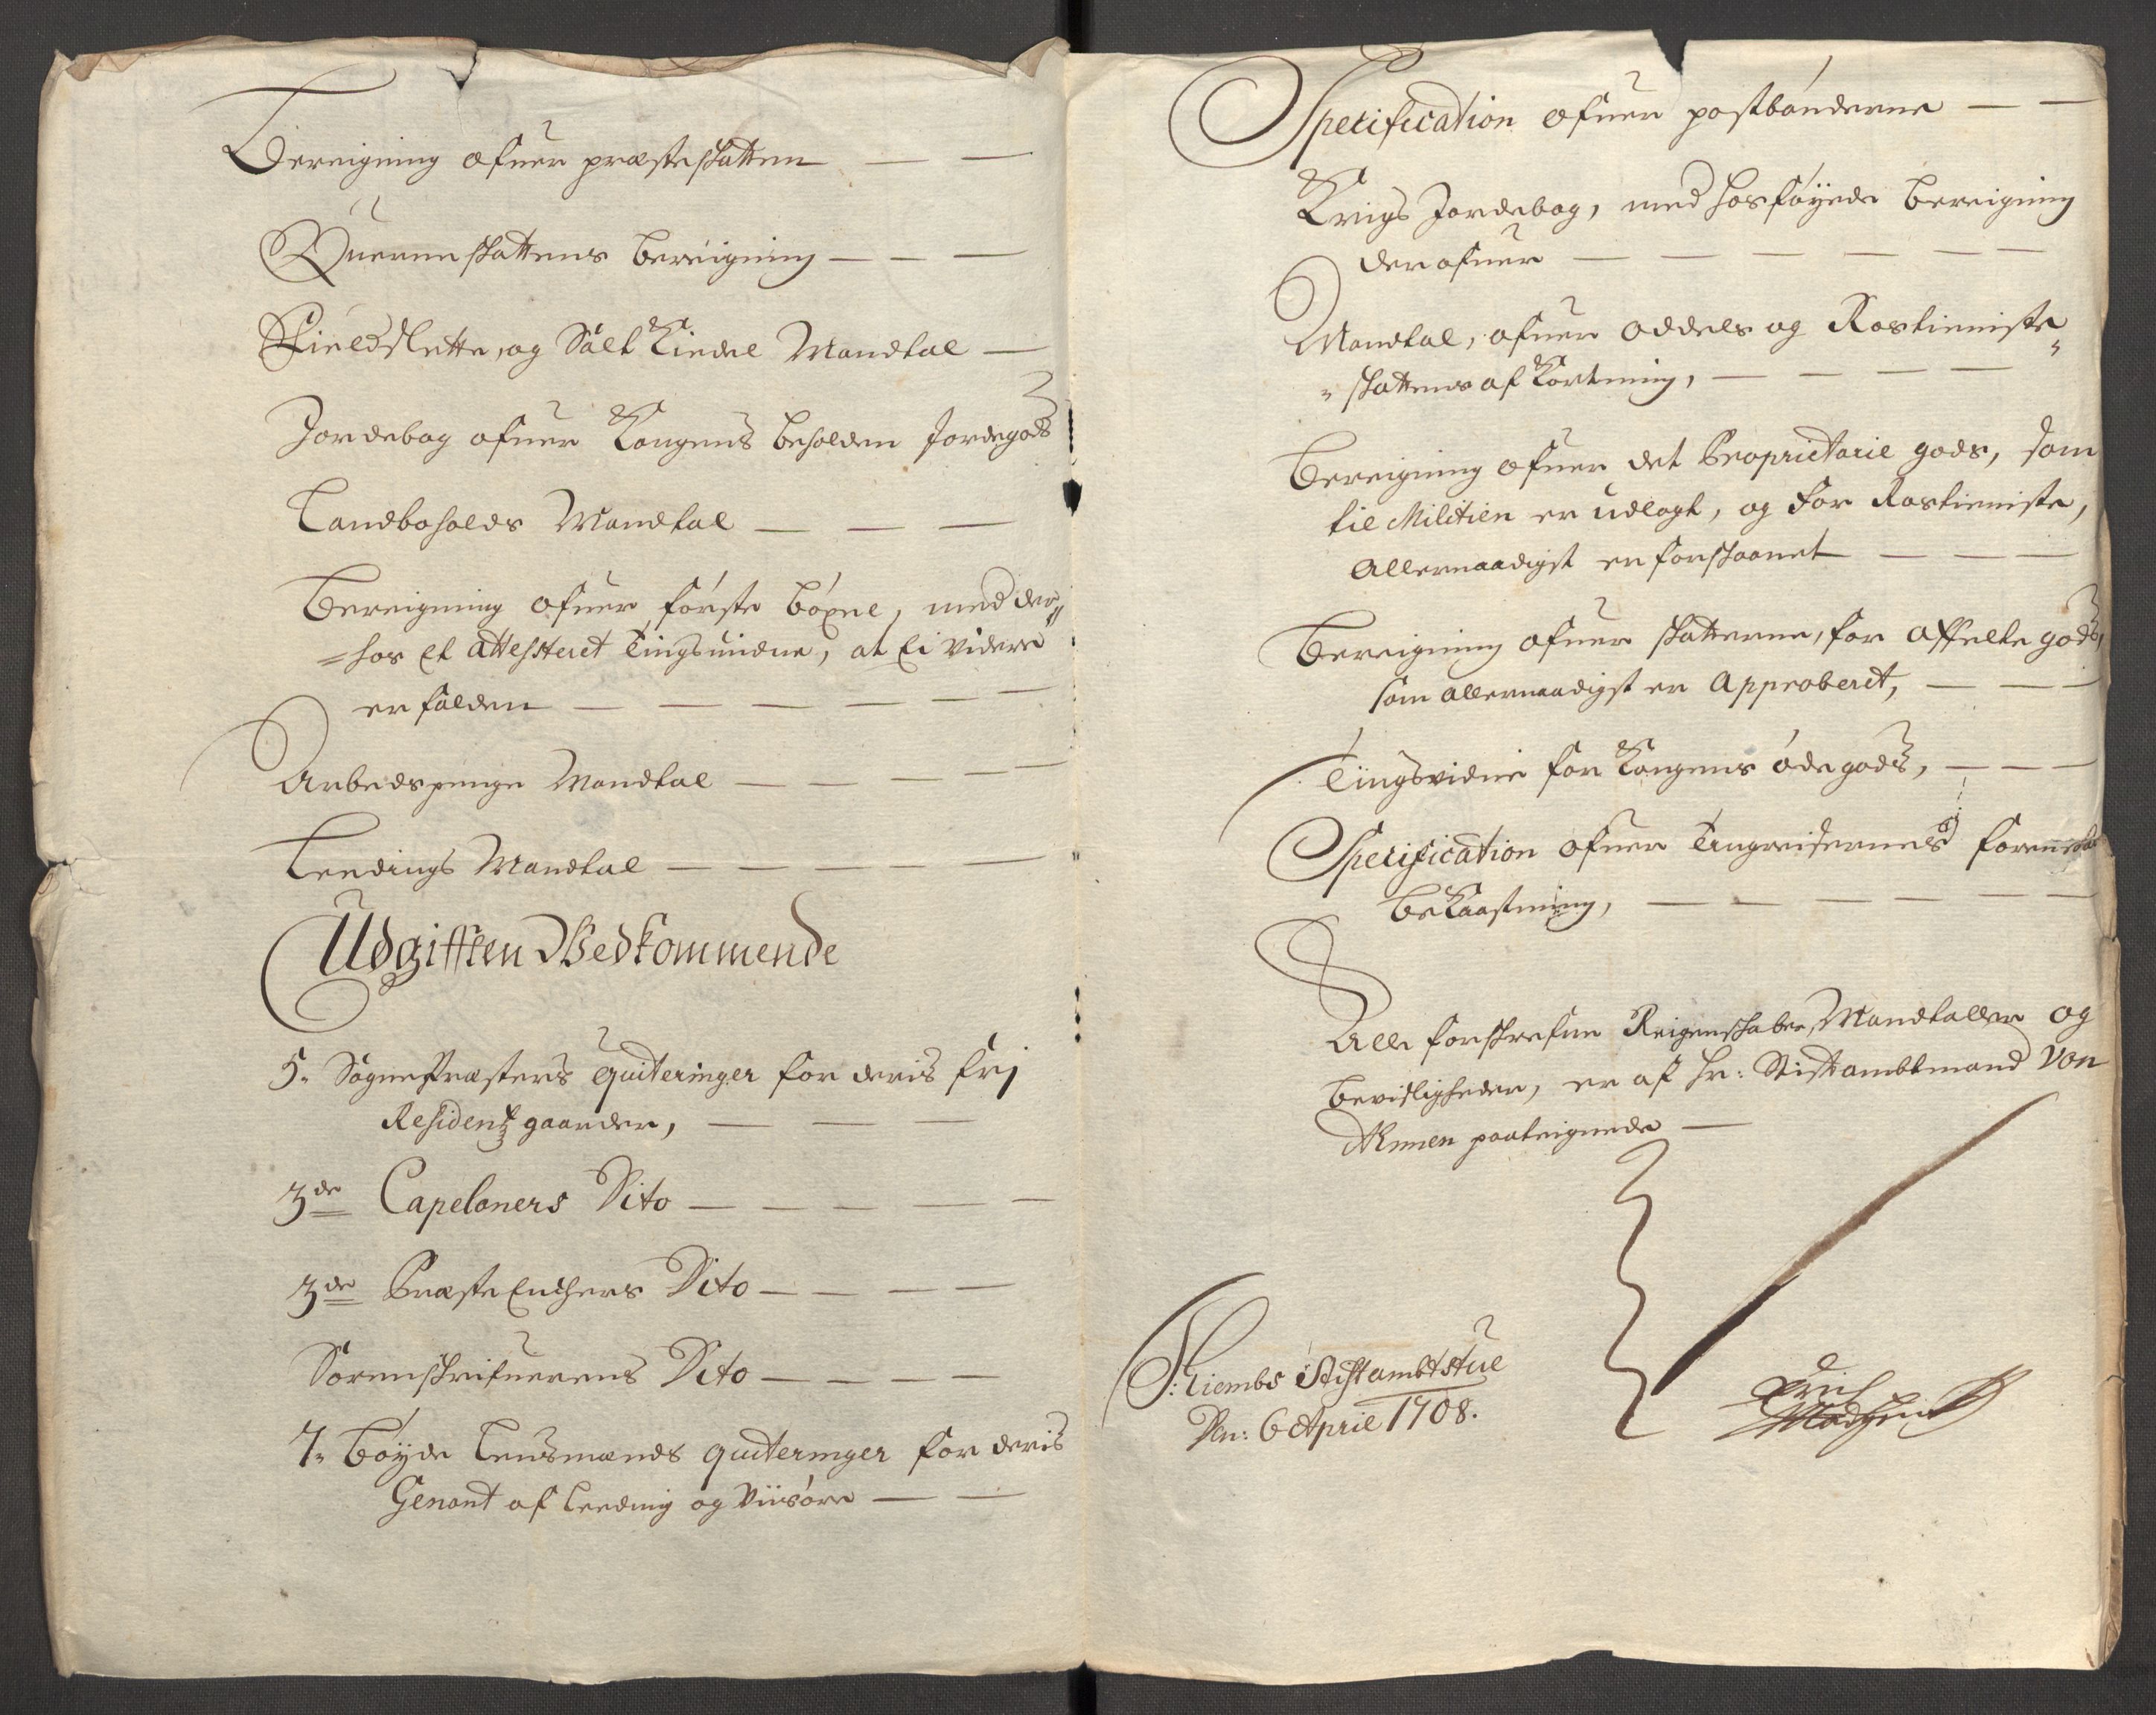 Bereigning ofuer præsteskatten — —
Quernskattens bereigning — — —
Fieldslette, og Salt Kiedel Mandtal —
Jordebog ofuer Kongens beholden Jordegods
Landboholds Mandtal — — —
Bereigning ofuer første böxne, med der
= hos et attesteret Tingsuidne, at Ei videre
er falden — — — — — —
Arbedspenge Mandtal — — — — —
Leedings Mandtal — — — — —
Udgifften Vedkommende
5. Sognepræsters quiteringer for deris frj
Residentz gaarder, — — —
3de Capelaners Dito — — — — —
3de Præste Enchers Dito — — — —
Sorenskrifuerens Dito — — — —
7. böyde Lensmænds quiteringer for deris
Genant af Leeding og Viisöre — —
Specification ofuer postbönderne — —
Krigs Jordebog, med hosföyede bereigning
derofuer — — — — — —
Mandtal, ofuer oddels og Rostieniste
= skattens af Kortning, — — — —
Bereigning ofuer det Proprietarie gods, som
til Militien er udlagt, og for Rostieniste,
Allernaadigst er forskaanet — — —
Bereigning ofuer skatterne, for affelte gods,
som allernaadigst er Approberet, — — —
Tiingsvidne for Kongens ödegods, — — —
Specification ofuer Tingreisernes
bekaastning, — — — — —
Alle forskrefne Reigenskaber, Mandtaller og
bevisligheder, er af Hr: Stiftambtmand Von
Ahnen paateignede —
S: Hiembs Stiftambtstue
Den: 6 April 1708.